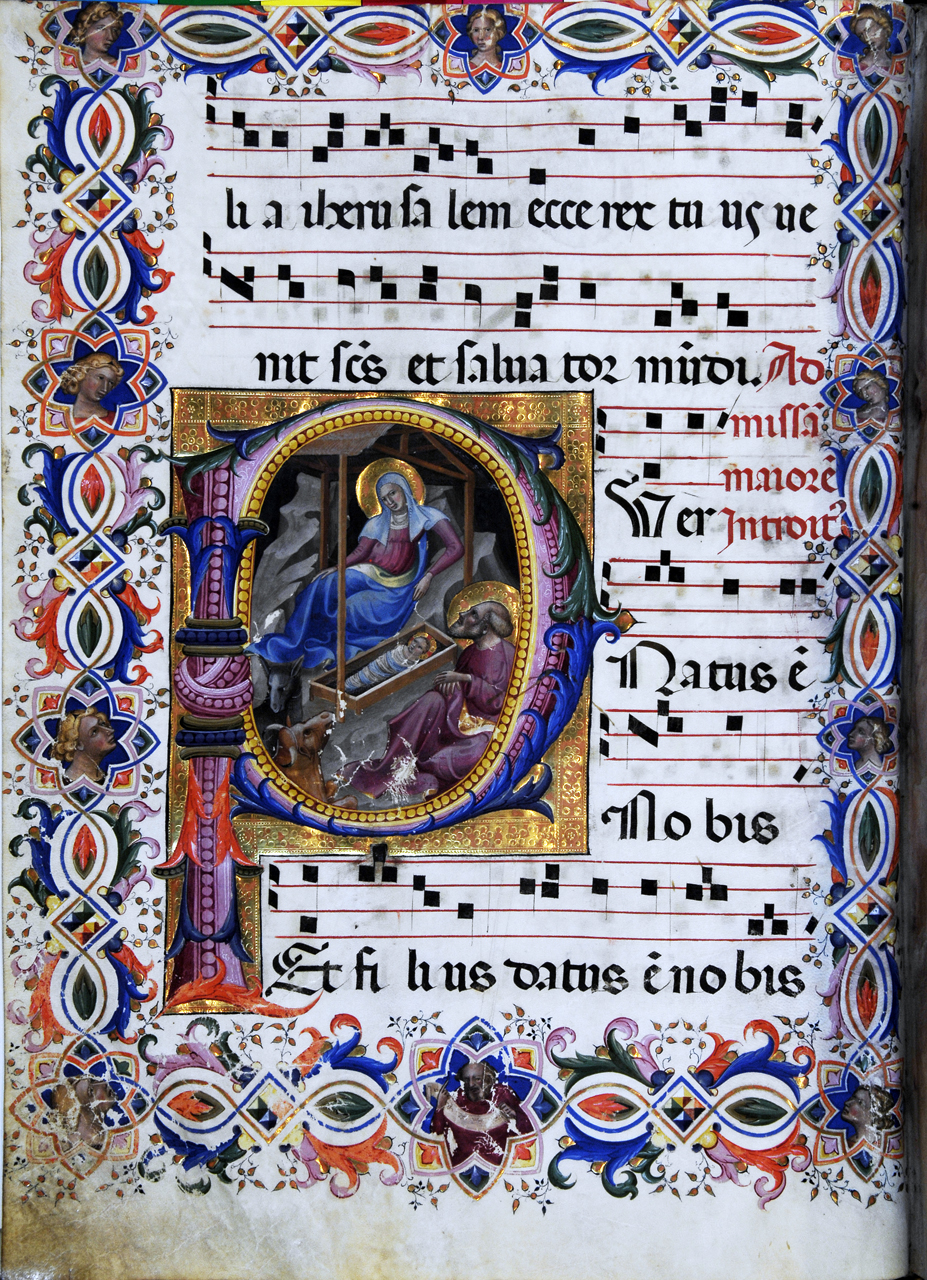 li a iherusalem ecce rex tuus ve
nit scs et salvator mūdi. Ad
missā
maiorē
Introit
Puer
Natus ē
Nobis
Et filius datus ē nobis